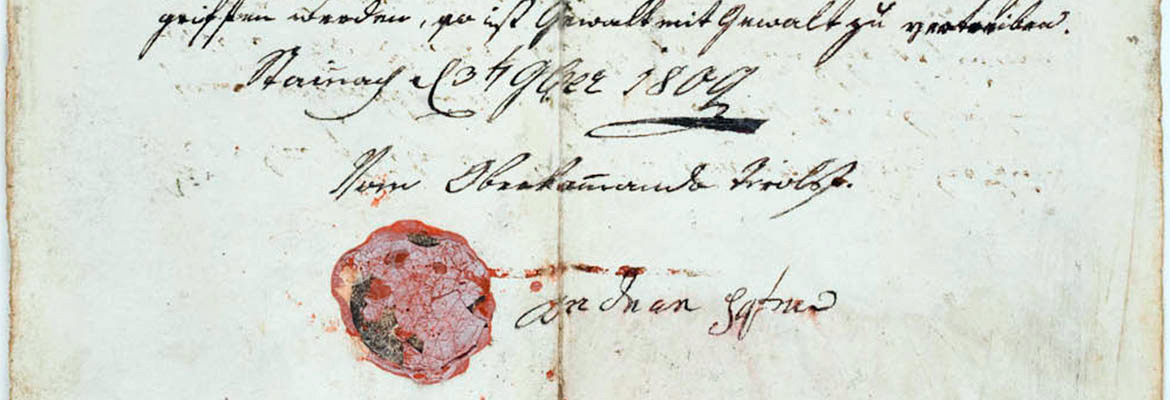 griffen werden, so ist Gewalt mit Gewalt zu vertreiben.
Stainach d 3t 9ber 1809
Vom Oberkommando Tirolß.
Andere Hofer